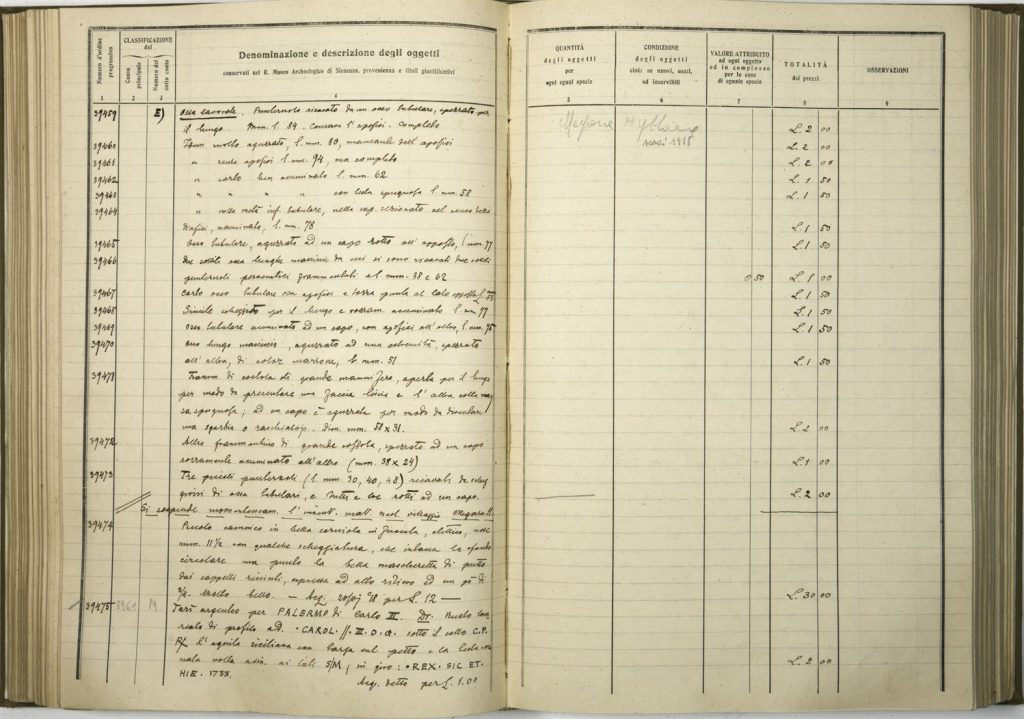 Numero d'ordine progressivo
CLASSIFICAZIONE
del
Conto principale
Numero del sotto conto
Denominazione e descrizione degli oggetti
conservati nel R. Museo Archeologico di Siracusa, provenienza e titoli giustificativi
1 2 3 4
39459 E) Ossa lavorate. Punteruolo ricavato da un osso tubulare, spezzato per
il lungo. mm. l. 84. Conserva l'apofisi. Completo
39460 Idem molto aguzzato, l. mm. 80, mancante dell'apofisi
39461 " senza apofisi l. mm. 94, ma completo
39462 " corto ben acuminato l. mm. 62
39463 " " " " con testa spugnosa l. mm. 58
39464 " nella metà inf. tubulare, nella sup. sezionato nel senso della
diafisi, acuminato, l. mm. 78
39465 Osso tubulare, aguzzato ad un capo rotto all'opposto, l. mm. 77
39466 Due ossa lunghe da cui si sono ricavati due
punteruoli frammentati a l. mm. 38 e 62
39467 Corto osso tubulare con apofisi e punta al lato opposto l. 53
39468 Simile scheggiato per il lungo e acuminato l. mm. 77
39469 Osso tubulare acuminato ad un capo, con apofisi all'altro, l. mm. 75
39470 Osso lungo massiccio, aguzzato ad una estremità, spezzato
all'altra, di color marrone, l. mm. 51
39471 Framm. di costola di grande mammifero, aperta per il lungo
per modo da presentare una faccia liscia e l'altra colla
spugnosa; ad un capo è aguzzata per modo da diventare
una sgorbia o raschiatoio. Dim. mm. 51 x 31.
39472 Altro frammentino di grande costola, spezzato ad un capo
rozzamente acuminato all'altro (mm. 38 x 24)
39473 Tre piccoli punteruoli (l. mm 30, 40, 48) ricavati da
di ossa tubulari, e tutti e tre rotti ad un capo.
Si sospende momentaneam. l'invent. mat. neol. villaggio Megara H.
39474 Piccolo cammeo in bella corniola, ellittico,
mm. 11 1/2 con qualche scheggiatura, che intacca lo sfondo
circolare ma punto la bella mascheretta di putto
dai capelli ricciuti, espressa ad alto rilievo ed un pò di
3/4. Molto bello. — Acq. '18 per L. 12 —
39475 8961 M Tarì argenteo per PALERMO di Carlo III. Dr. Busto
di profilo a d. • CAROL • // • III • D • G • sotto il collo C.P.
R/ L'aquila siciliana con targa sul petto e la testa
volta a sin. ai lati S/M; in giro: • REX • SIC ET •
HIE • 1733.
Acq. detto per L. 1.00
QUANTITÀ
degli oggetti
per
ogni sguei specie
CONDIZIONE
degli oggetti
cioè: se nuovi, usati,
od inservibili
VALORE ATTRIBUITO
ad ogni oggetto
ed in complesso
per le cose
di uguale specie
TOTALITÀ
dei prezzi
OSSERVAZIONI
5 6 7 8 9
Megara Hyblaea
1918
L. 2 00
L. 2 00
L. 2 00
L. 1 50
L. 1 50
L. 1 50
L. 1 50
0 50 L. 1 00
L. 1 50
L. 1 50
L. 1 50
L. 1 50
L. 2 00
L. 1 00
L. 2 00
L. 30 00
L. 2 00